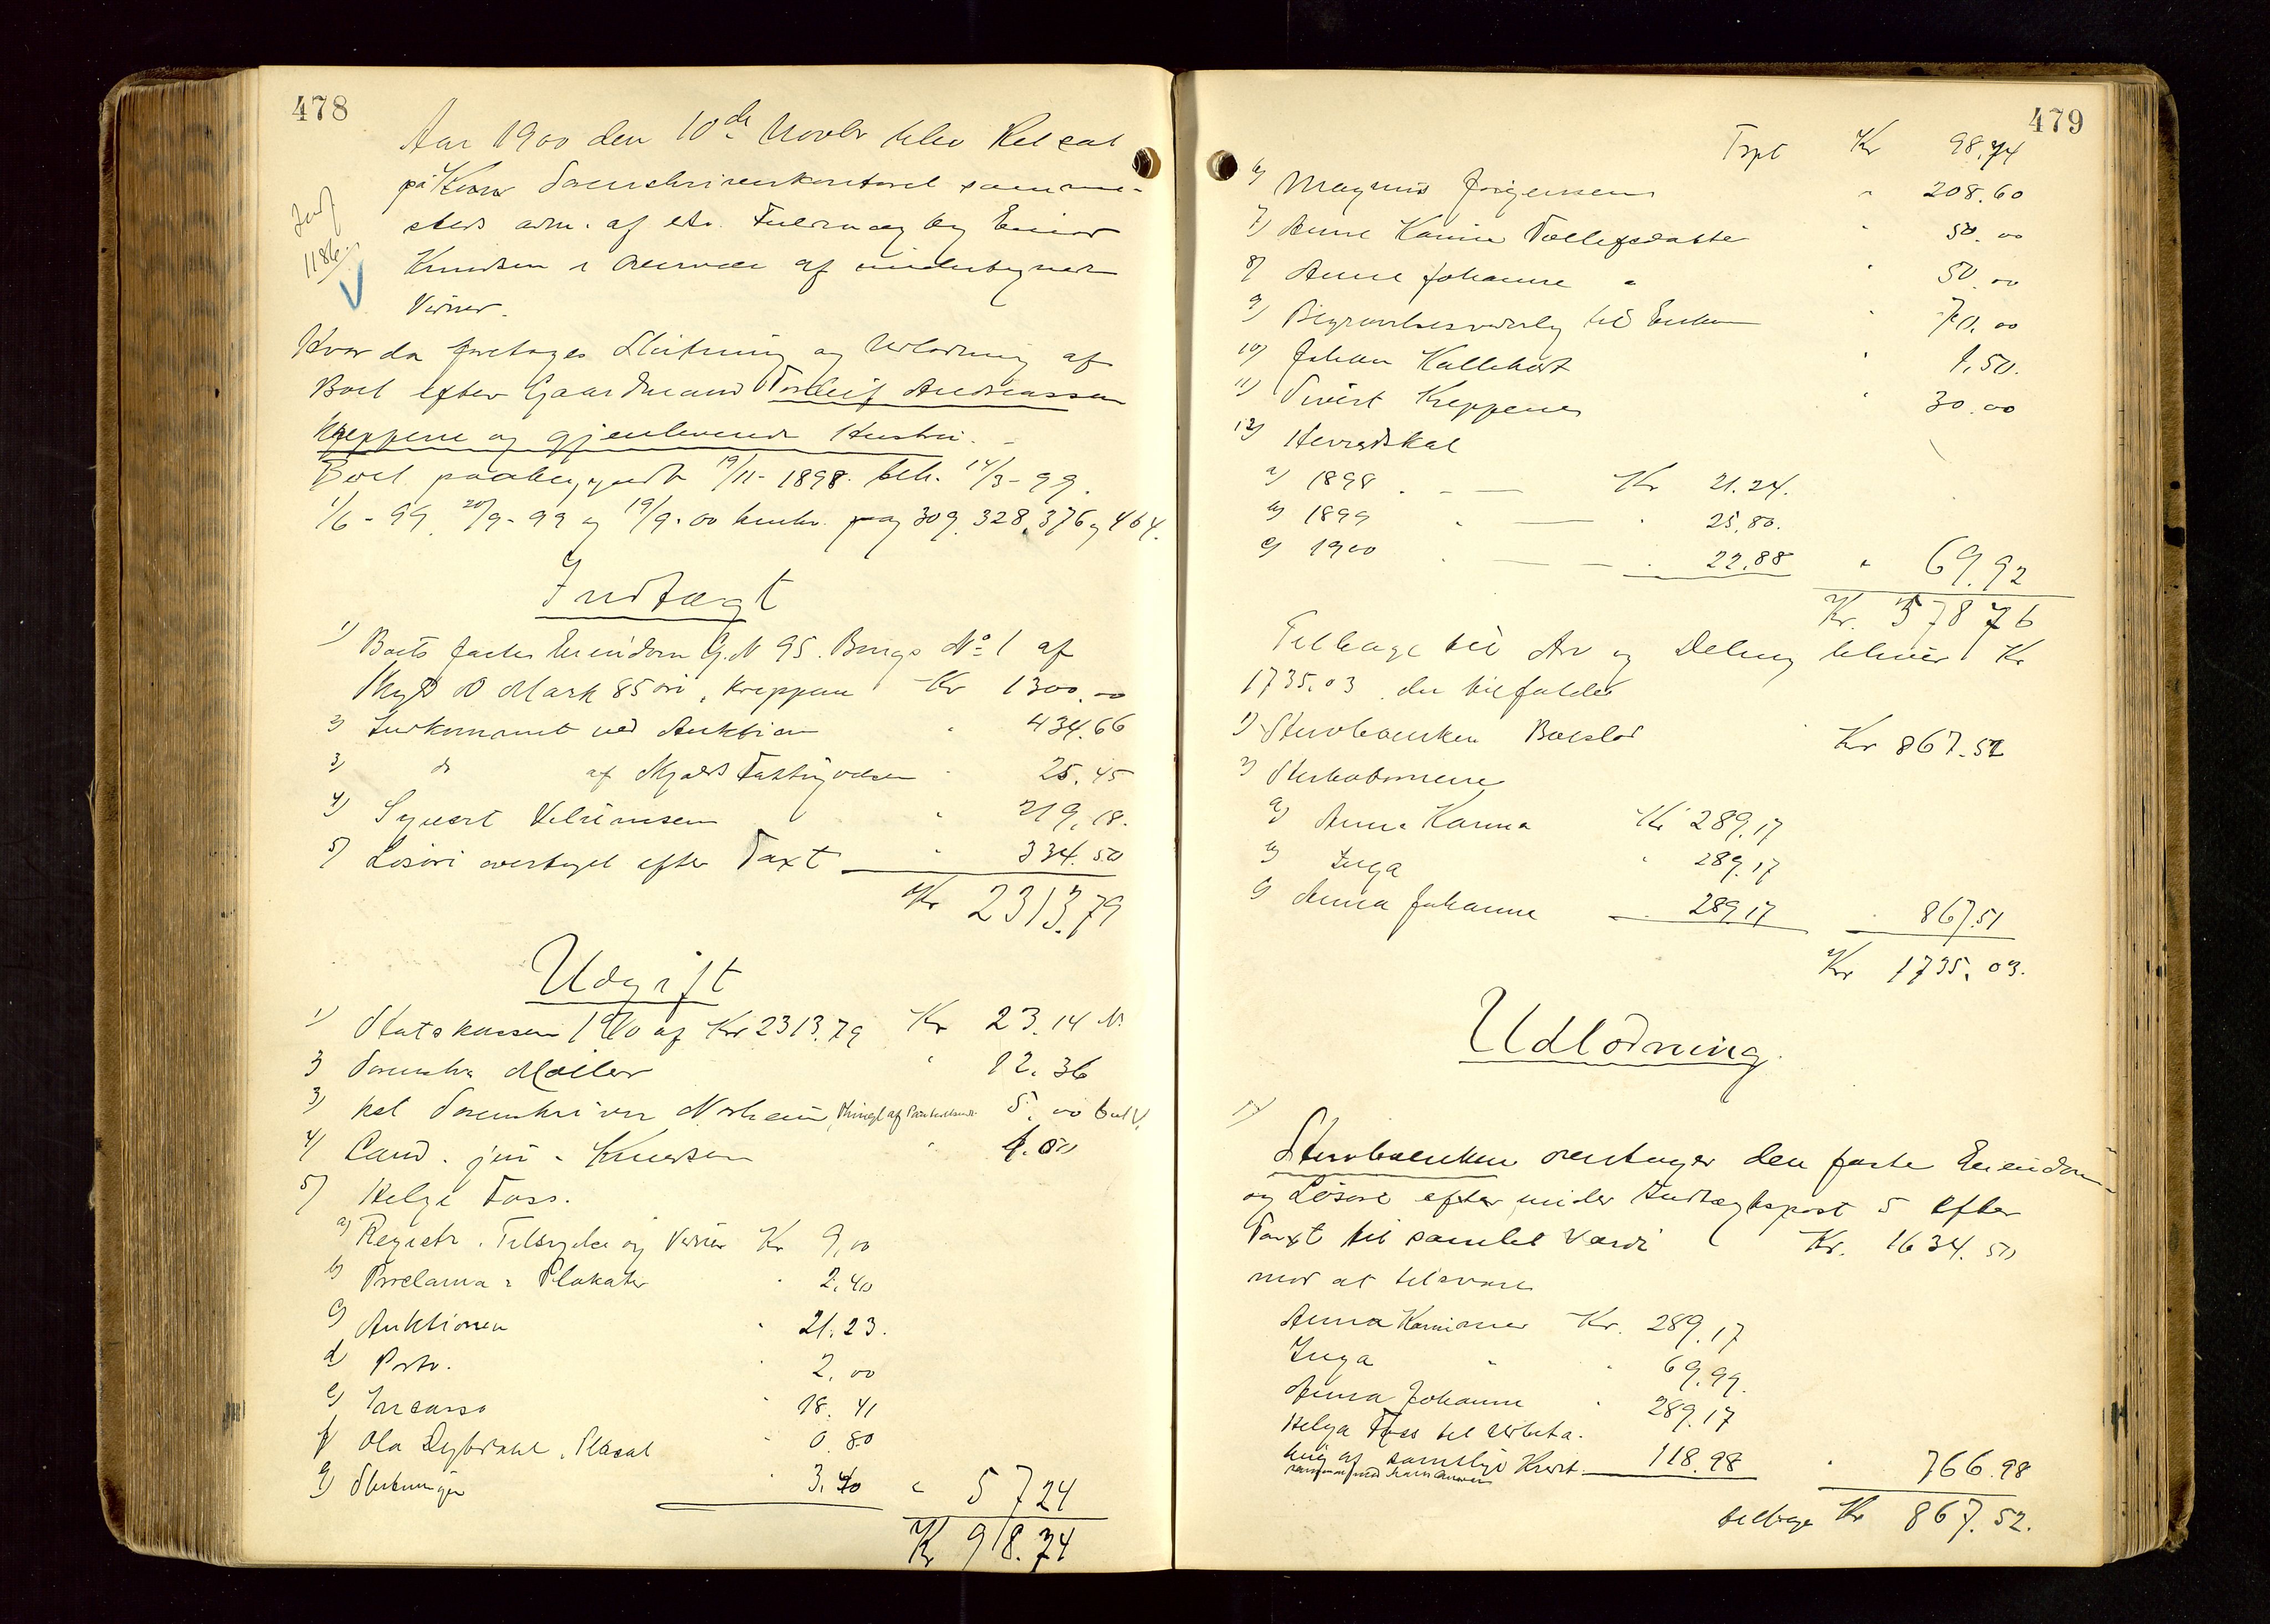 478
Aar 1900 den 10de Novbr blev Ret sat
på Sorenskriverkontoret samme-
steds adm. af
Knudsen i Overvær af undertegnede
Vidner.
Jnf
1186
Hvor da foretoges Slutning og Udlodning af
Boet efter Gaardmand Torleif Andreassen
Kreppene og gjenlevende Hustru. -
Boet paabegyndt 19/11-1898. beh. 14/3-99.
1/6-99. 20/9-99 og 19/9-00 pag 309. 328, 376 og 464.
Indtægt
1) Boets faste Eiendom G. N 95. Brugs No 1 af
Skyld 0 Mark 85 øre, Kreppene Kr 1300.00
2) Indkommet ved Auktion " 434.66
3) do af Tollefsen " 25.45
4) Syvert Velumsen " 219.18.
5) Løsøre overtaget efter Taxt " 334.50
Kr 2313.79
Udgift
1) Statskassen 1% af Kr 2313.79 Kr 23.14
2) Sorenskr. Møller " 12.36
3) kst Sorenskriver Norheim, 5.00
4) Cand. jur. Knudsen " 1.00
5) Helge Foss.
a) Registr. Tilsigelse og Vidner Kr 9,00
b) Proclama & Plakater " 2,40
c) Auktionen " 21.23.
d) Porto. " 2,00
e) Incasso " 18.41
f) Ola Dybdahl, Plakat " 0.80
g) Slutningen " 3,40 " 57 24
Kr 98.74
479
Trpt Kr 98,74
6) Magnus Jørgensen " 208.60
7) Anne Karine Tollefsdatter " 50.00
8) Anne Johanne " " 50.00
9) Begravelsesudlæg til Enken " 70,00
10) Johan Kallhovd " 1,50.
11) Sivert Kreppene " 30.00
12) Herredskat
a) 1898 . - — Kr 21.24.
b) 1899 . — " 25,80.
c) 1900 . — - " 22.88 " 69.92
Kr. 578 76
Tilbage til Arv og Deling bliver Kr
1735,03 der tilfalder
1) Stervboenken Boeslod Kr 867.52
2) Stervbobørnene
a) Anna Karina Kr 289,17
b) Inga " 289,17
c) Anna Johanne " 289,17 " 867.51
Kr 1735,03.
Udlodning.
1)
Stervboenken overtager den faste Eiendom
og Løsøre efter under Indtægtspost 5 efter
Taxt til samlet Værdi Kr. 1634.50
mod at tilsvare
Anna Kr. 289,17
Inga " " 69,99.
Anna Johanne " 289,17
Helge Foss til Udbeta-
ling af samtlige Kred. 118.98 " 766.98
tilbage Kr 867.52.